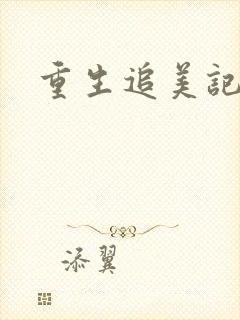 重生追美记
添翼